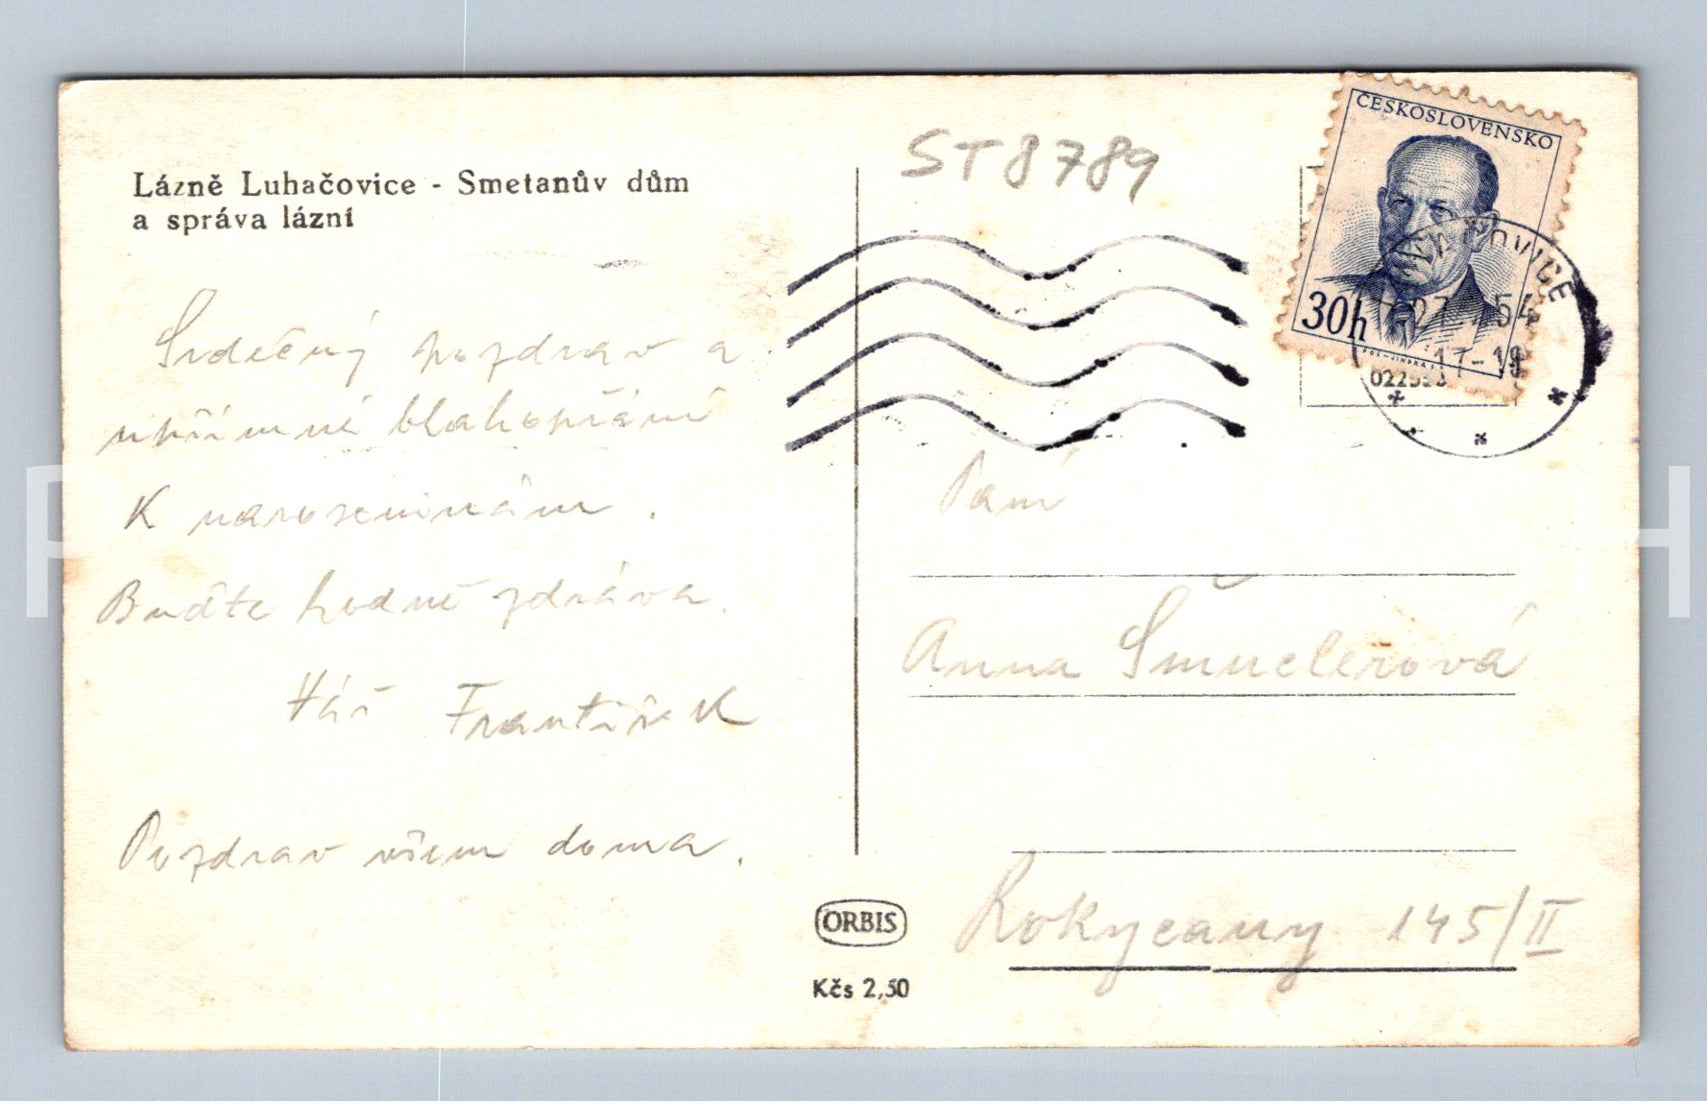 Lázně Luhačovice - Smetanův dům
a správa lázní
ST8789
ČESKOSLOVENSKO
30h
54
17-19
Srdečný pozdrav a
upřímné blahopřání
K narozeninám.
Buďte hodně zdráva.
Váš František
Pozdrav všem doma.
Paní
Anna Šmuclerová
Rokycany 145/II
ORBIS
Kčs 2,50